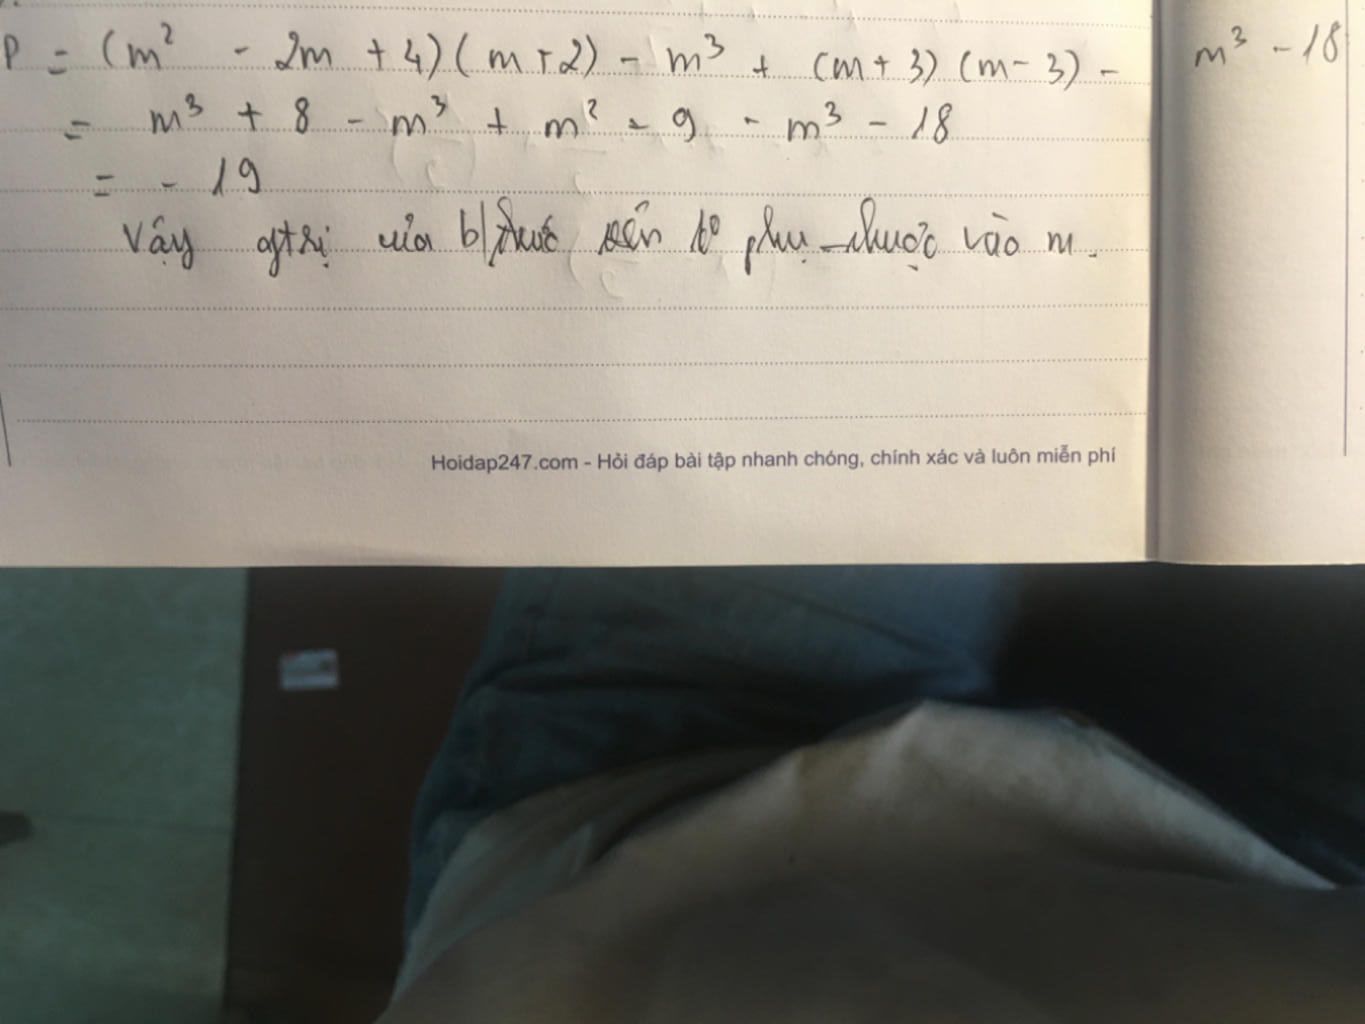 P = (m² - 2m + 4)(m + 2) - m³ + (m + 3)(m - 3) - m³ - 18
= m³ + 8 - m³ + m² - 9 - m³ - 18
= - 19
Vậy gtrị của b/thức trên k⁰ phụ thuộc vào m.
Hoidap247.com - Hỏi đáp bài tập nhanh chóng, chính xác và luôn miễn phí